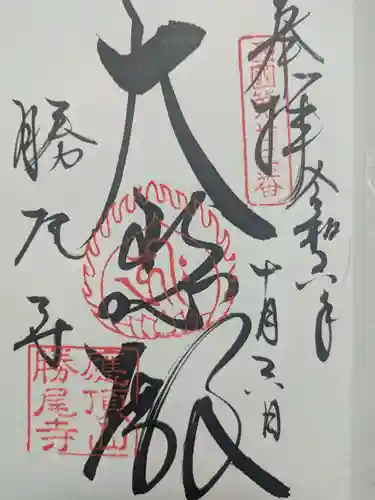 奉拝
令和六年
十月六日
西国第廿三番
大悲殿
勝尾寺
應頂山
勝尾寺